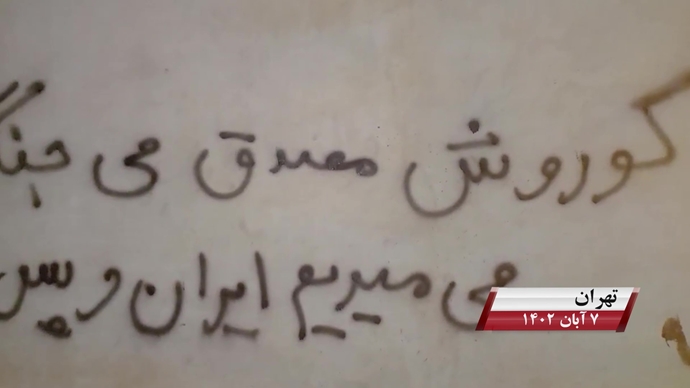 کوروش مصدق می جنگ
می میریم ایران و پس
تهران
۷ آبان ۱۴۰۲